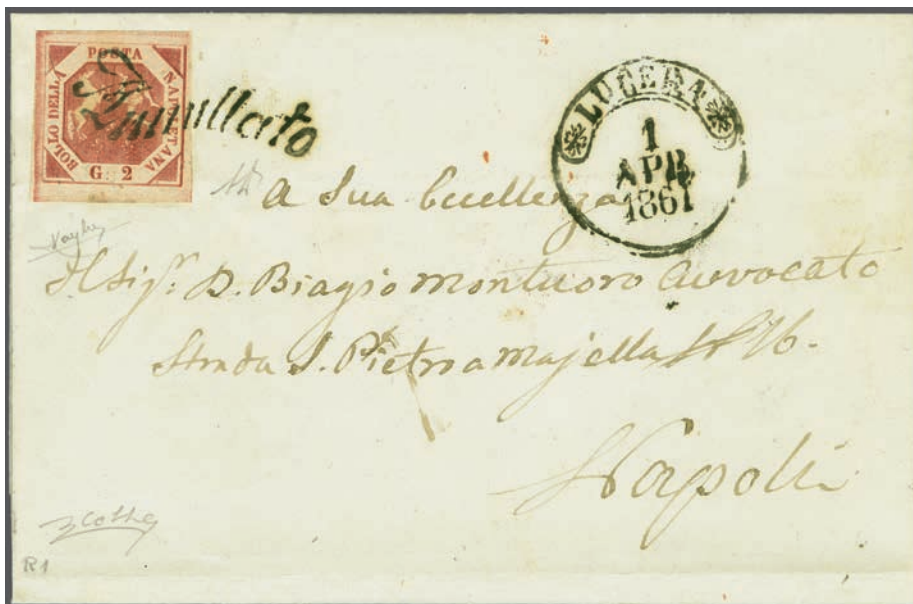 POSTA
NAPOLETANA
BOLLO DELLA
G. 2
Annullato
LUCERA
1
APR.
1861
A Sua Eccellenza
Il Sigr. D. Biagio Montuoro Avvocato
Strada S. Pietro a Majella N 76.
Napoli
R1